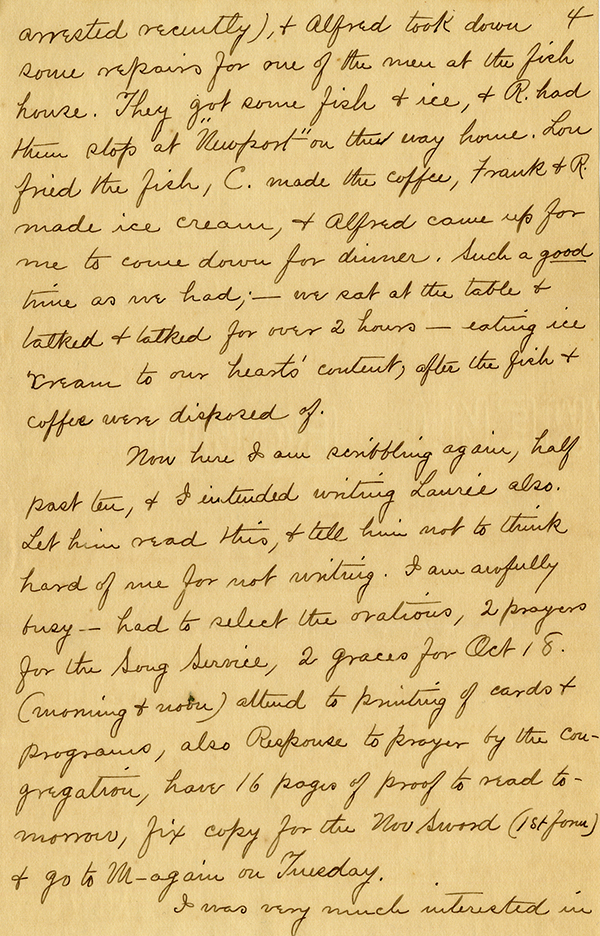 arrested recently), & Alfred took down 4
some repairs for one of the men at the fish
house. They got some fish & ice, & R. had
them stop at "Newport" on their way home. Lou
fried the fish, C. made the coffee, Frank & R.
made ice cream, & Alfred came up for
me to come down for dinner. Such a good
time as we had; — we sat at the table &
talked & talked for over 2 hours — eating ice
cream to our hearts' content, after the fish &
coffee were disposed of.
Now here I am scribbling again, half
past ten, & I intended writing Laurie also.
Let him read this, & tell him not to think
hard of me for not writing. I am awfully
busy — had to select the orations, 2 prayers
for the Song Service, 2 graces for Oct 18.
(morning & noon) attend to printing of cards &
programs, also Response to prayer by the con-
gregation, have 16 pages of proof to read to-
morrow, fix copy for the Nov Sword (1st form)
& go to M— again on Tuesday.
I was very much interested in